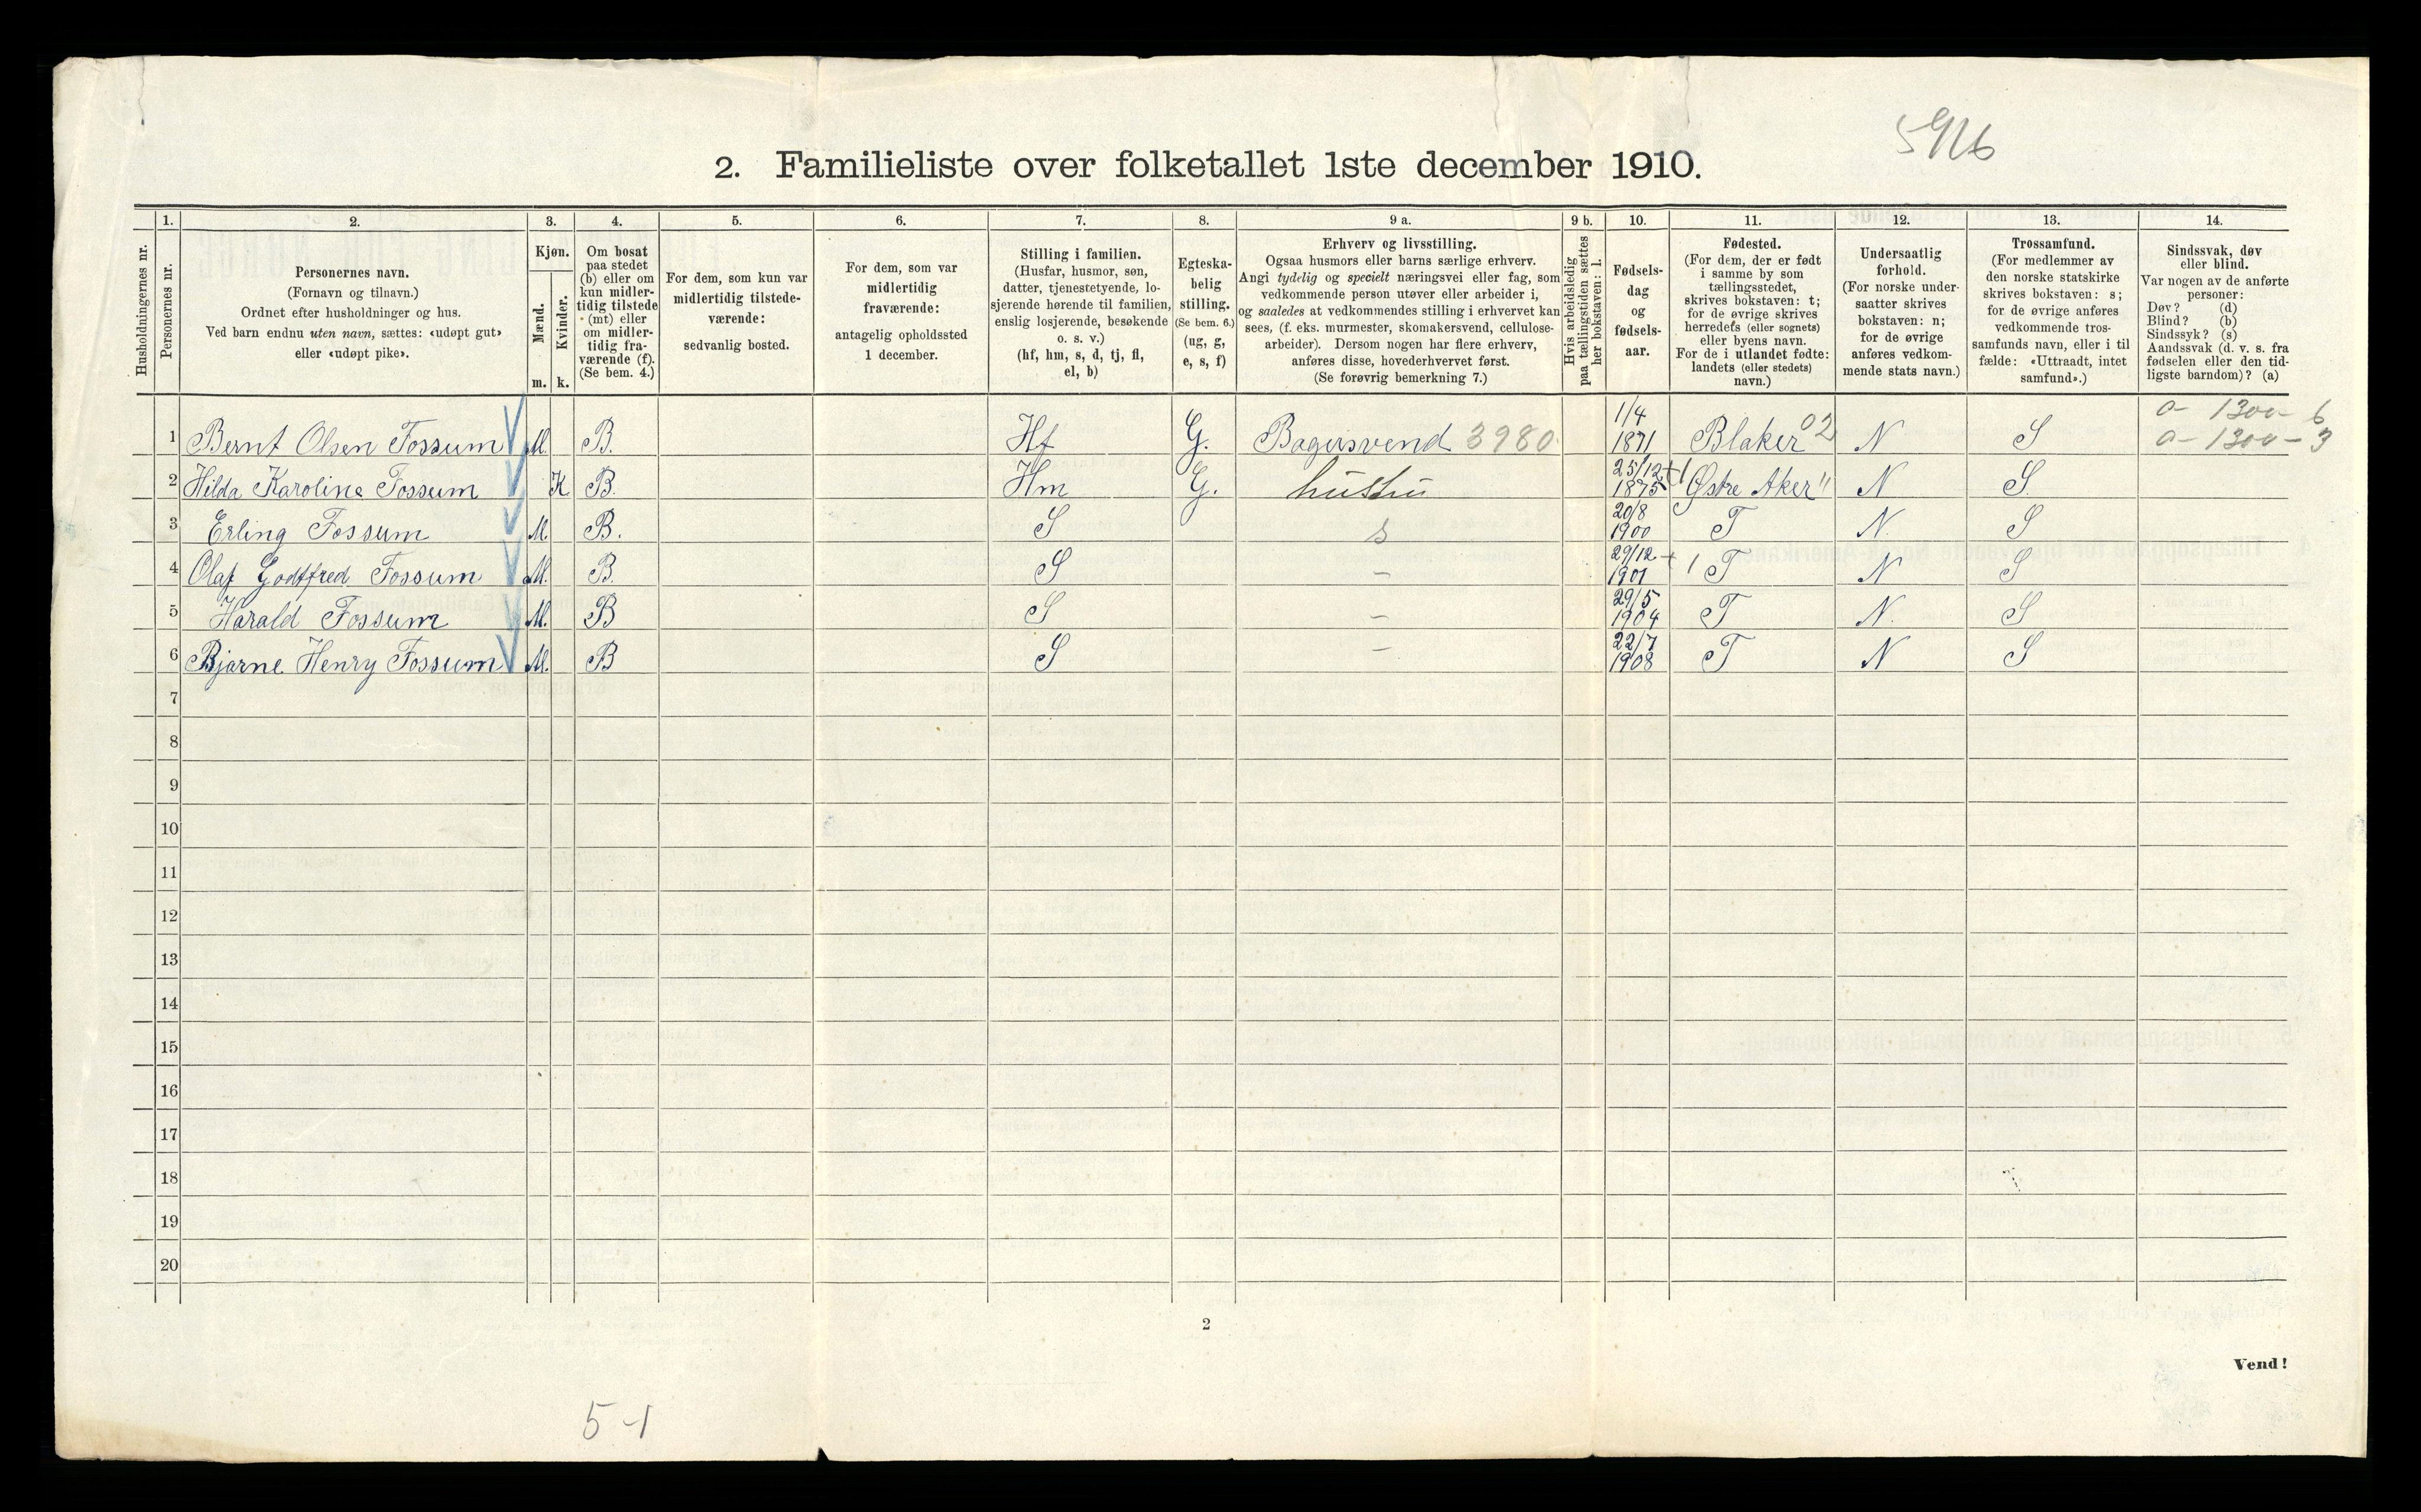 5916
2. Familieliste over folketallet 1ste december 1910.
Husholdningernes nr.
1.
Personernes nr.
2.
Personernes navn.
(Fornavn og tilnavn.)
Ordnet efter husholdninger og hus.
Ved barn endnu uten navn, sættes: «udøpt gut»
eller «udøpt pike».
3.
Kjøn.
Mænd.
Kvinder.
m. k.
4.
Om bosat
paa stedet
(b) eller om
kun midler-
tidig tilstede
(mt) eller
om midler-
tidig fra-
værende (f).
(Se bem. 4.)
5.
For dem, som kun var
midlertidig tilstede-
værende:
sedvanlig bosted.
6.
For dem, som var
midlertidig
fraværende:
antagelig opholdssted
1 december.
7.
Stilling i familien.
(Husfar, husmor, søn,
datter, tjenestetyende, lo-
sjerende hørende til familien,
enslig losjerende, besøkende
o. s. v.)
(hf, hm, s, d, tj, fl,
el, b)
8.
Egteska-
belig
stilling.
(Se bem. 6.)
(ug, g,
e, s, f)
9 a.
Erhverv og livsstilling.
Ogsaa husmors eller barns særlige erhverv.
Angi tydelig og specielt næringsvei eller fag, som
vedkommende person utøver eller arbeider i,
og saaledes at vedkommendes stilling i erhvervet kan
sees, (f. eks. murmester, skomakersvend, cellulose-
arbeider). Dersom nogen har flere erhverv,
anføres disse, hovederhvervet først.
(Se forøvrig bemerkning 7.)
9 b.
Hvis arbeidsledig
paa tællingstiden sættes
her bokstaven: l.
10.
Fødsels-
dag
og
fødsels-
aar.
11.
Fødested.
(For dem, der er født
i samme by som
tællingsstedet,
skrives bokstaven: t;
for de øvrige skrives
herredets (eller sognets)
eller byens navn.
For de i utlandet fødte:
landets (eller stedets)
navn.)
12.
Undersaatlig
forhold.
(For norske under-
saatter skrives
bokstaven: n;
for de øvrige
anføres vedkom-
mende stats navn.)
13.
Trossamfund.
(For medlemmer av
den norske statskirke
skrives bokstaven: s;
for de øvrige anføres
vedkommende tros-
samfunds navn, eller i til
fælde: «Uttraadt, intet
samfund».)
14.
Sindssvak, døv
eller blind.
Var nogen av de anførte
personer:
Døv? (d)
Blind? (b)
Sindssyk? (s)
Aandssvak (d. v. s. fra
fødselen eller den tid-
ligste barndom)? (a)
1 Bernt Olsen Fossum M. B. Hf G. Bagersvend 3980 1/4 1871 Blaker 02 N S 0- 1300- 6
0- 1300- 3
2 Hilda Karoline Fossum K B. Hm G. hustru 25/12 1875 Østre Aker " N S.
3 Erling Fossum M. B. S s 20/8 1900 T N. S
4 Olaf Godtfred Fossum M. B. S – 29/12 1901 + 1 T N S
5 Harald Fossum M. B S – 29/5 1904 T N. S
6 Bjarne Henry Fossum M. B S – 22/7 1908 T N S
7
8
9
10
11
12
13
14
15
16
17
18
19
20
2
Vend!
5-1